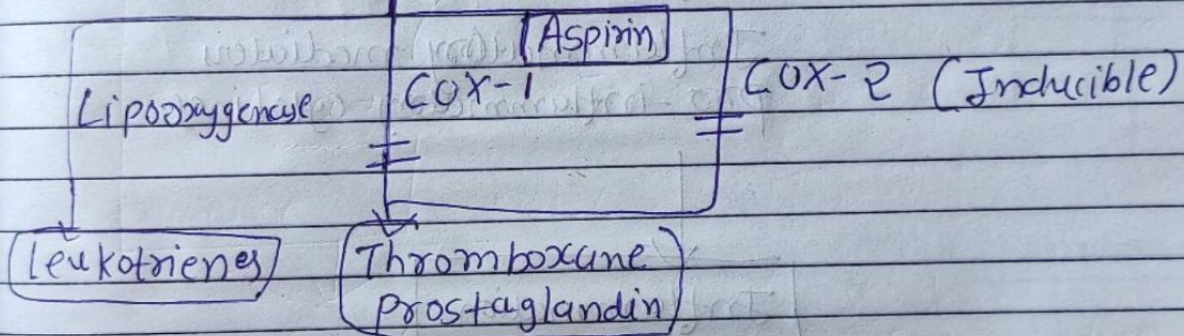 Aspirin
Lipooxygenase
COX-1
COX-2 (Inducible)
Leukotrienes
Thromboxane
prostaglandin